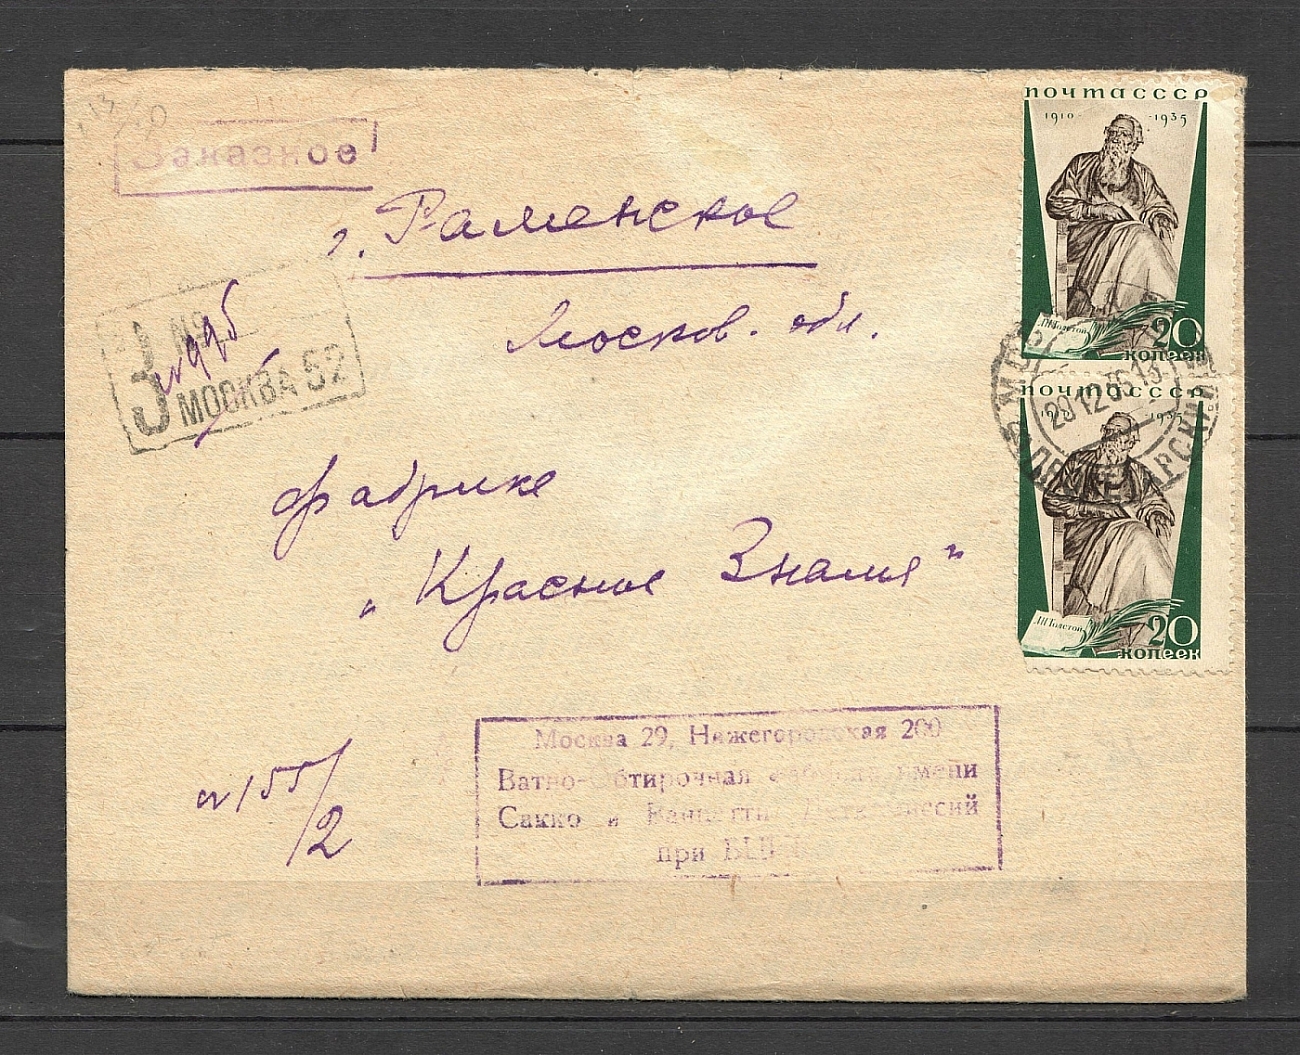 Заказное
г. Раменское
Москов. обл.
З №
№995
МОСКВА 52
фабрике
„Красное Знамя"
№155/2
Москва 29, Нижегородская 200
Ватно-Обтирочная фабрика имени
Сакко и Ванцетти
при
ПОЧТА СССР
1910 - 1935
Л.Н.Толстой
20
копеек
ПОЧТА СССР
1935
29 12 35 13
Л.Н.Толстой
20
копеек